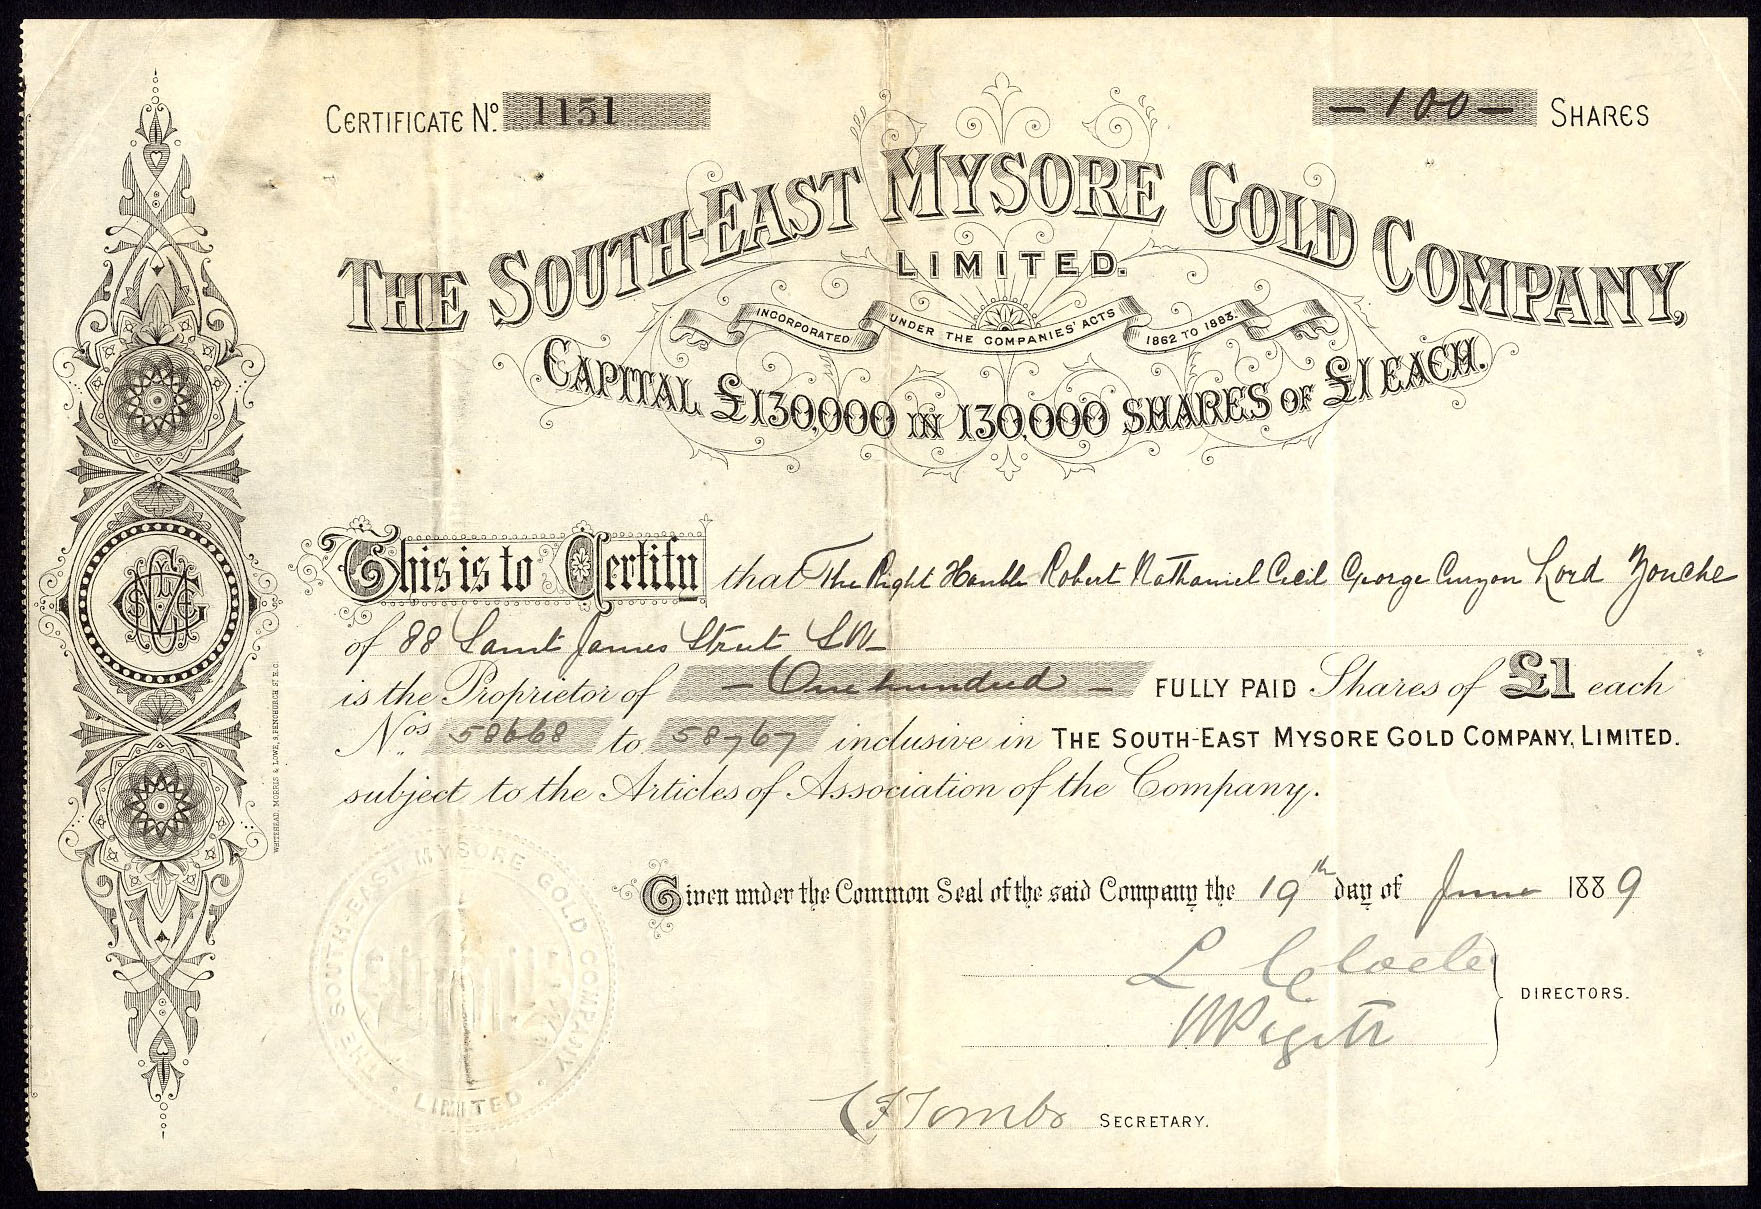 CERTIFICATE No. 1151
— 100 — SHARES
THE SOUTH-EAST MYSORE GOLD COMPANY,
LIMITED.
INCORPORATED UNDER THE COMPANIES' ACTS 1862 TO 1883.
CAPITAL £130,000 IN 130,000 SHARES OF £1 EACH.
This is to Certify that The Right Honble Robert Nathaniel Cecil George Curzon Lord Zouche
of 88 Saint James Street SW
is the Proprietor of — One hundred — FULLY PAID Shares of £1 each
Nos. 58668 to 58767 inclusive in THE SOUTH-EAST MYSORE GOLD COMPANY, LIMITED.
subject to the Articles of Association of the Company.
Given under the Common Seal of the said Company the 19th day of June 1889
L Cloete
DIRECTORS.
CF Tombs SECRETARY.
THE SOUTH-EAST MYSORE GOLD COMPANY · LIMITED ·
WHITEHEAD, MORRIS & LOWE, 9, FENCHURCH ST. E.C.